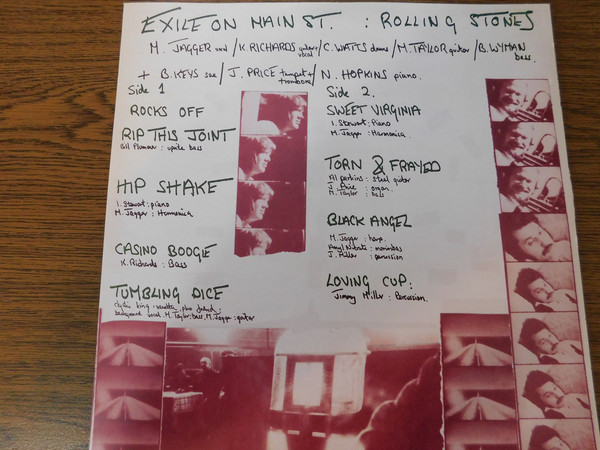 EXILE ON MAIN ST. : ROLLING STONES
M. JAGGER vocal / K. RICHARDS guitar + vocal / C. WATTS drums / M. TAYLOR guitar / B. WYMAN bass.
+ B. KEYS sax / J. PRICE trumpet + trombone / N. HOPKINS piano.
Side 1
ROCKS OFF
RIP THIS JOINT
Bill Plummer : uprite bass
HIP SHAKE
I. Stewart : piano
M. Jagger : Harmonica
CASINO BOOGIE
K. Richards : Bass
TUMBLING DICE
background vocal. M. Taylor : bass. M. Jagger : guitar
Side 2.
SWEET VIRGINIA
I. Stewart : Piano
M. Jagger : Harmonica.
TORN & FRAYED
Al perkins : steel guitar
J. Price : organ.
M. Taylor : bass
BLACK ANGEL
M. Jagger : harp.
J. Miller : percussion
LOVING CUP :
Jimmy Miller : Percussion.